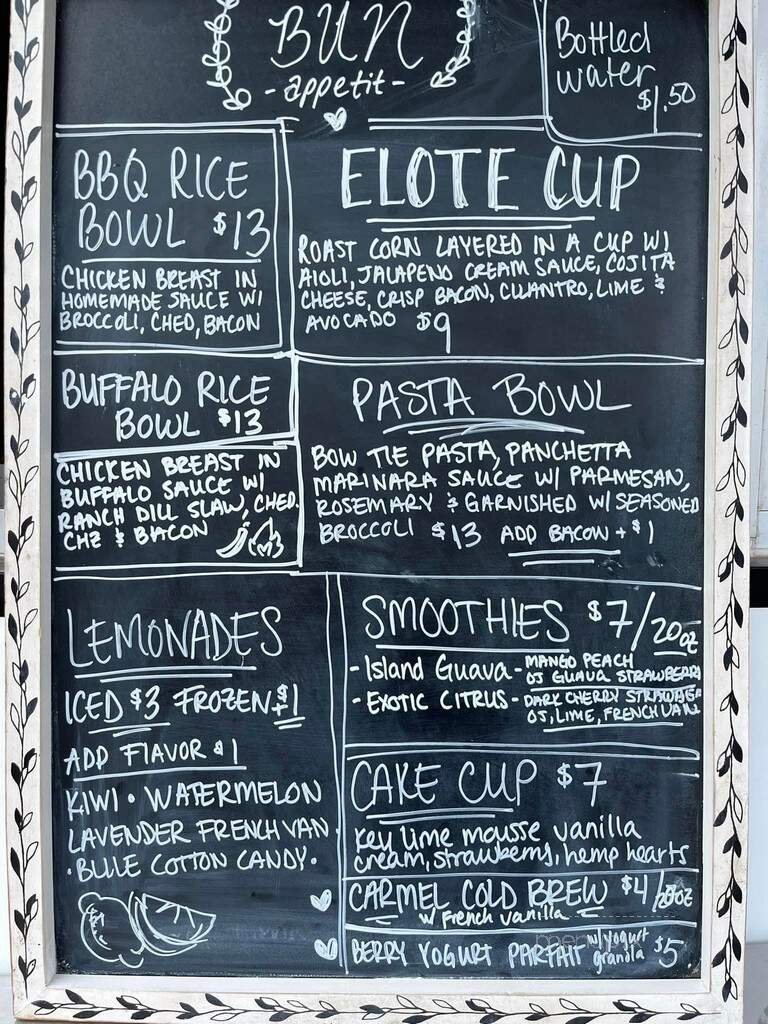 BUN
-appetit-
Bottled
water
$1.50
BBQ RICE
BOWL $13
CHICKEN BREAST IN
HOMEMADE SAUCE W/
BROCCOLI, CHED, BACON
ELOTE CUP
ROAST CORN LAYERED IN A CUP W/
AIOLI, JALAPENO CREAM SAUCE, COJITA
CHEESE, CRISP BACON, CILANTRO, LIME &
AVOCADO $9
BUFFALO RICE
BOWL $13
CHICKEN BREAST IN
BUFFALO SAUCE W/
RANCH DILL SLAW, CHED.
CHZ & BACON
PASTA BOWL
BOW TIE PASTA, PANCHETTA
MARINARA SAUCE W/ PARMESAN,
ROSEMARY & GARNISHED W/ SEASONED
BROCCOLI $13 ADD BACON + $1
LEMONADES
ICED $3 FROZEN +$1
ADD FLAVOR $1
KIWI • WATERMELON
LAVENDER FRENCH VAN.
• BLUE COTTON CANDY •
SMOOTHIES $7/20oz
- Island Guava - MANGO PEACH
OJ GUAVA STRAWBERRY
- EXOTIC CITRUS - DARK CHERRY
OJ, LIME, FRENCH VAN
CAKE CUP $7
Key lime mousse vanilla
cream, strawberris, hemp hearts
CARMEL COLD BREW $4/20oz
w/ French vanilla
BERRY YOGURT PARFAIT w/ yogurt
granola $5